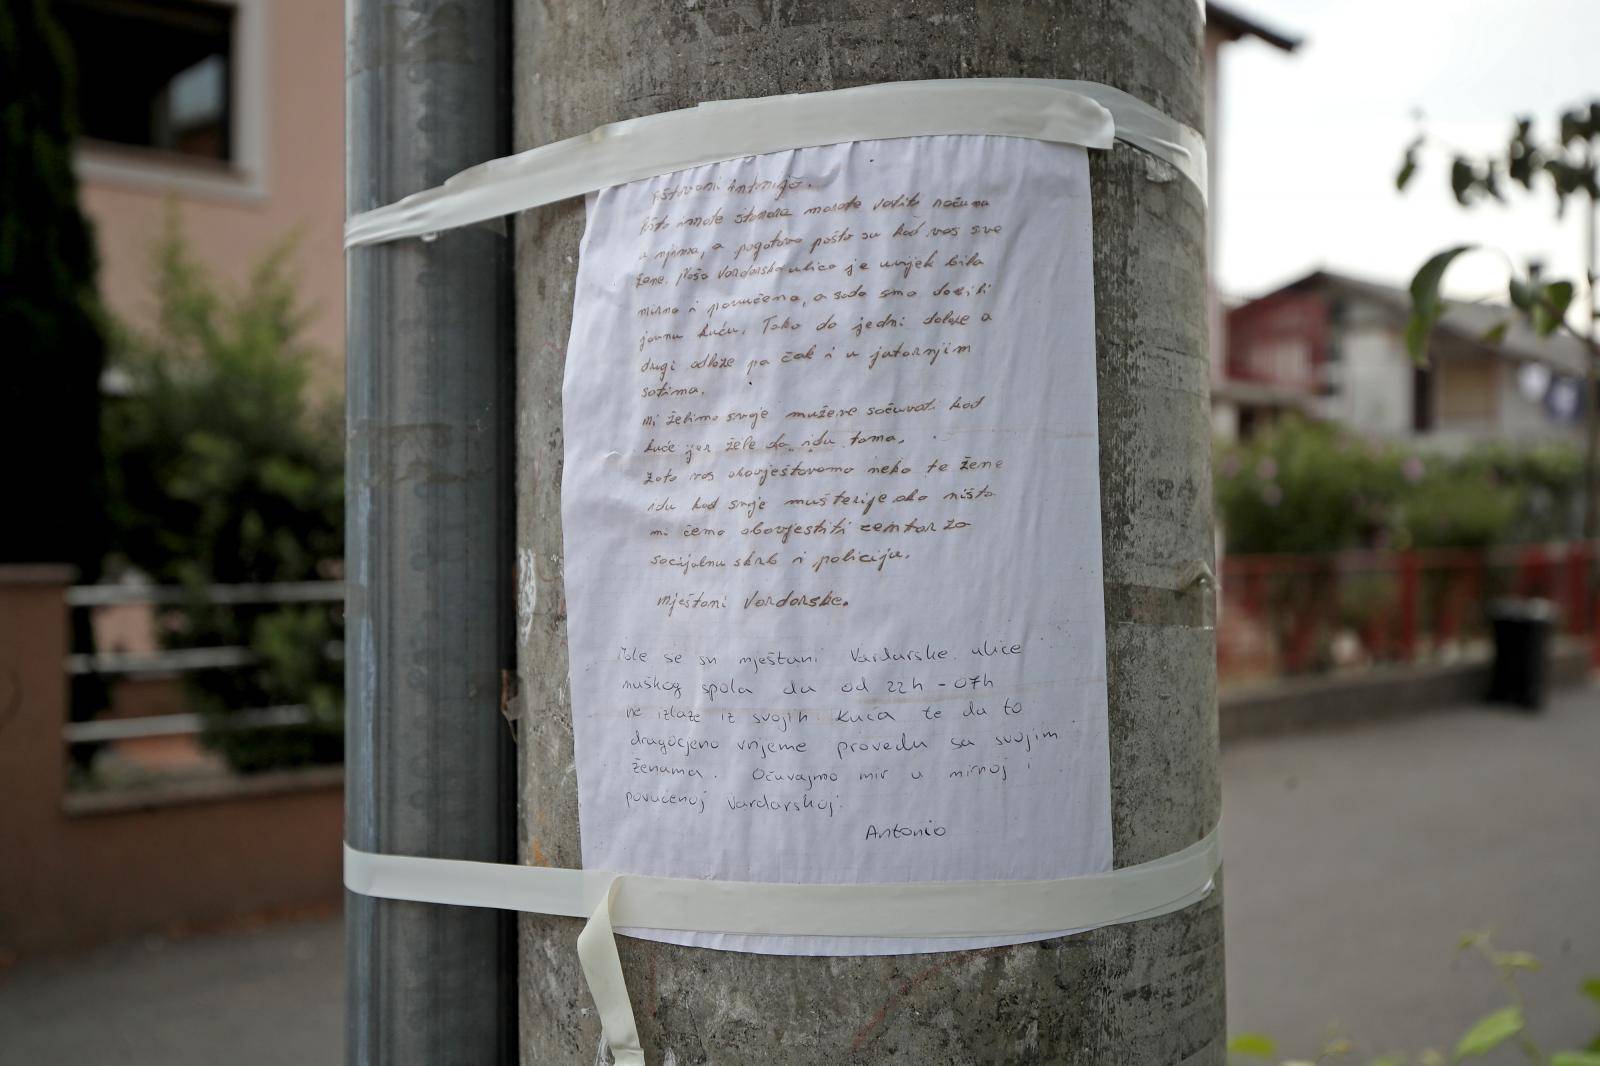 Poštovani Antonijo.
Pošto imate stanare morate voditi računa
o njima, a pogotovo pošto su kod vas sve
žene. Naša Vardarska ulica je uvijek bila
mirna i povučena, a sada smo dobili
javnu kuću. Tako da jedni dolaze a
drugi odlaze pa čak i u jutarnjim
satima.
Mi želimo svoje muževe sačuvati kod
kuće jer žele da idu tama.
Zato vas obavještavamo neka te žene
idu kod svoje mušterije ako ništa
mi ćemo obavjestiti centar za
socijalnu skrb i policiju.
Mještani Vardarske.
Mole se svi mještani Vardarske ulice
muškog spola da od 22h - 07h
ne izlaze iz svojih kuća te da to
dragocjeno vrijeme provedu sa svojim
ženama. Očuvajmo mir u mirnoj i
povučenoj Vardarskoj.
Antonio